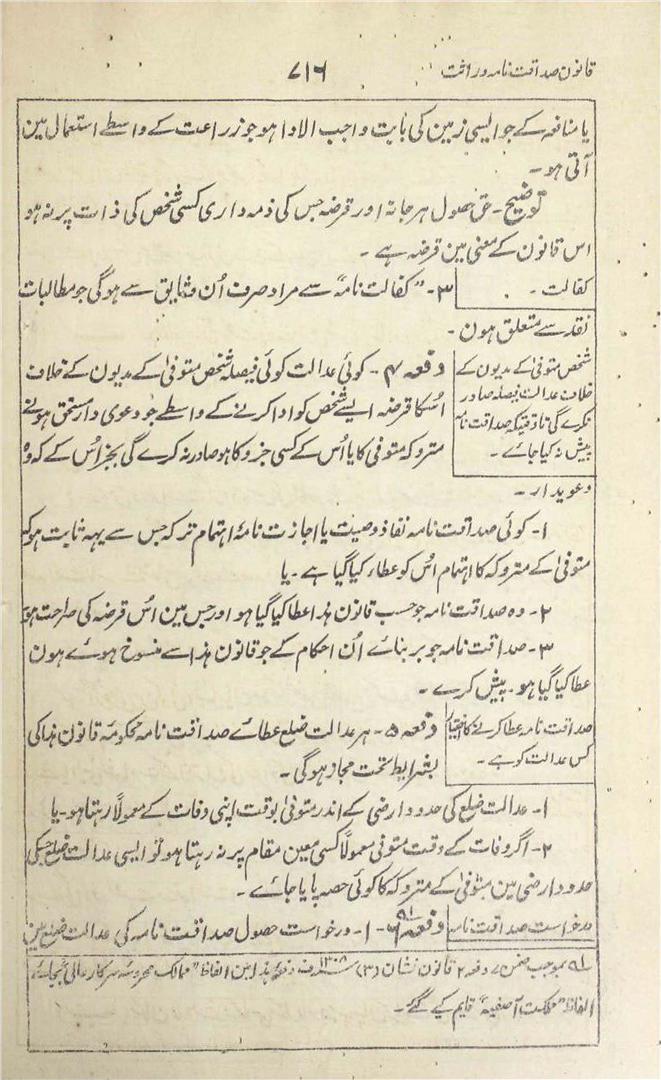 قانون صداقت نامہ وراثت
۷۱۶
یا منافعہ کے جو ایسی زمین کی بابت واجب الادا ہو جو زراعت کے واسطے استعمال مین
آتی ہو۔
توضیح۔ حق حصول ہرجانہ اور قرضہ جس کی ذمہ داری کسی شخص کی ذات پر نہ ہو
اس قانون کے معنی مین قرضہ ہے۔
کفالت۔
۳۔ "کفالت نامہ" سے مراد صرف اُن وثایق سے ہوگی جو مطالبات
نقد سے متعلق ہون۔
شخص متوفیٰ کے مدیون کے
خلاف عدالت فیصلہ صادر
نکرے گی تا وقتیکہ صداقت نامہ
پیش نہ کیا جائے۔
دفعہ ۴۔ کوئی عدالت کوئی فیصلہ شخص متوفیٰ کے مدیون کے خلاف
اُسکا قرضہ ایسے شخص کو ادا کرنے کے واسطے جو دعوی دار مستحق ہونے
متروکہ متوفی کا یا اُس کے کسی جزو کا ہو صادر نہ کرے گی بجز اُس کے کہ وہ
دعویدار۔
۱۔ کوئی صداقت نامہ نفاذ وصیت یا اجازت نامۂ اہتمام ترکہ جس سے یہہ ثابت ہو کہ
متوفیٰ کے متروکہ کا اہتمام اُس کو عطاء کیا گیا ہے۔ یا
۲۔ وہ صداقت نامہ جو حسب قانون ہذا عطا کیا گیا ہو اور جس مین اُس قرضہ کی صراحت ہو
۳۔ صداقت نامہ جو بر بنائے اُن احکام کے جو قانون ہذا سے منسوخ ہوئے ہون
عطا کیا گیا ہو۔ پیش کرے۔
صداقت نامہ عطا کرنے کا اختیار
کس عدالت کو ہے۔
دفعہ ۵۔ ہر عدالت ضلع عطائے صداقت نامہ محکومۂ قانون ہذا کی
بشرایط تحت مجاز ہوگی۔
۱۔ عدالت ضلع کی حدود ارضی کے اندر متوفیٰ بوقت اپنی وفات کے معمولاً رہتا ہو۔ یا
۲۔ اگر وفات کے وقت متوفی معمولاً کسی معین مقام پر نہ رہتا ہو تو ایسی عدالت ضلع جسکی
حدود ارضی مین متوفیٰ کے متروکہ کا کوئی حصہ پایا جائے۔
درخواست صداقت نامہ
دفعہ ۶۔ ۱۔ درخواست حصول صداقت نامہ کی عدالت ضلع مین
بموجب ضمن ۷ دفعہ ۲ قانون نشان (۳) ۱۳۰۸ف دفعہ ہذا مین الفاظ "ممالک محروسہ سرکار عالی" بجائے
الفاظ "مملکت آصفیہ" قایم کیے گئے۔